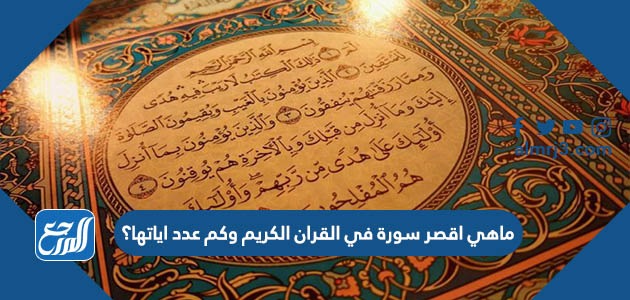 بِسْمِ اللَّهِ الرَّحْمَٰنِ الرَّحِيمِ
الٓمٓ ١ ذَٰلِكَ الْكِتَٰبُ لَا رَيْبَ فِيهِ هُدًى
لِّلْمُتَّقِينَ ٢ الَّذِينَ يُؤْمِنُونَ بِالْغَيْبِ وَيُقِيمُونَ الصَّلَوٰةَ
وَمِمَّا رَزَقْنَٰهُمْ يُنفِقُونَ ٣ وَالَّذِينَ يُؤْمِنُونَ بِمَا أُنزِلَ
إِلَيْكَ وَمَا أُنزِلَ مِن قَبْلِكَ وَبِالْآخِرَةِ هُمْ يُوقِنُونَ ٤
أُولَٰئِكَ عَلَىٰ هُدًى مِّن رَّبِّهِمْ وَأُولَٰئِكَ
هُمُ الْمُفْلِحُونَ
almrj3.com
ماهي اقصر سورة في القران الكريم وكم عدد اياتها؟
المرجع